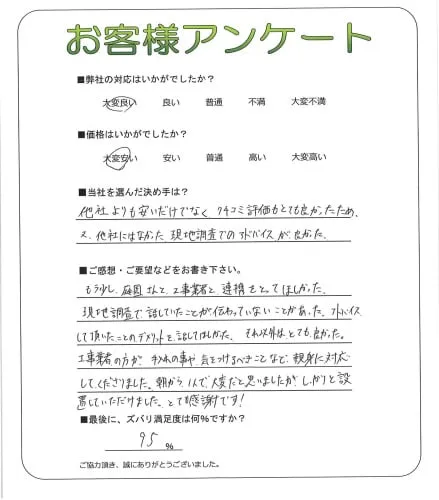 お客様アンケート
■弊社の対応はいかがでしたか？
大変良い 良い 普通 不満 大変不満
■価格はいかがでしたか？
大変安い 安い 普通 高い 大変高い
■当社を選んだ決め手は？
他社よりも安いだけでなく クチコミ評価もとても良かったため、
又、他社にはなかった 現地調査でのアドバイスが良かった。
■ご感想・ご要望などをお書き下さい。
もう少し、庭園さんと、工事業者と 連携をとってほしかった。
現地調査で話していたことが伝わっていないことがあった。アドバイス
して頂いたことのデメリットを話してほしかった。それ以外はとても良かった。
工事業者の方が、 気をつけるべきことなど、親身に対応
してくださりました。朝から1人で大変だと思いましたが しっかりと設
置していただけました。とても感謝です！
■最後に、ズバリ満足度は何%ですか？
95 %
ご協力頂き、誠にありがとうございました。